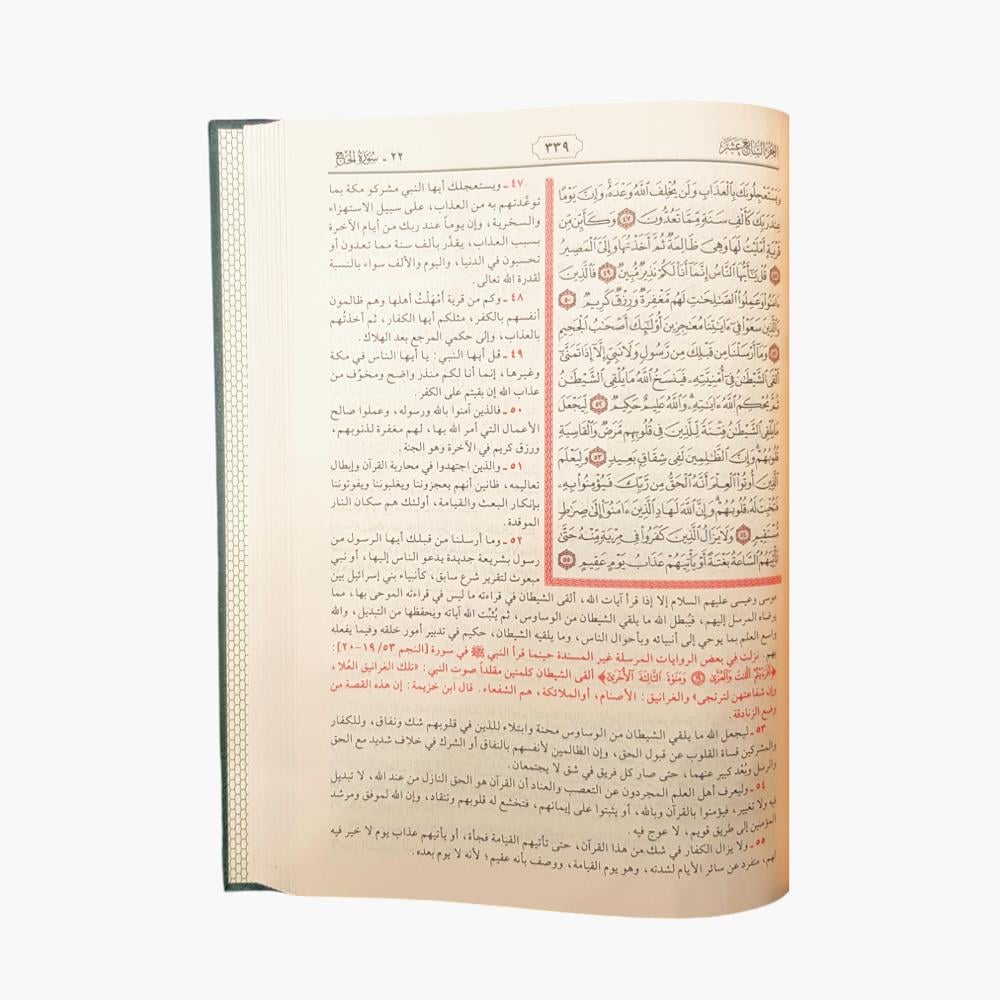 الجزء السابع عشر
٣٣٩
٢٢ - سورة الحج
وَيَسْتَعْجِلُونَكَ بِٱلْعَذَابِ وَلَن يُخْلِفَ ٱللَّهُ وَعْدَهُۥ وَإِنَّ يَوْمًا
عِندَ رَبِّكَ كَأَلْفِ سَنَةٍ مِّمَّا تَعُدُّونَ ٤٧ وَكَأَيِّن مِّن
قَرْيَةٍ أَمْلَيْتُ لَهَا وَهِىَ ظَالِمَةٌ ثُمَّ أَخَذْتُهَا وَإِلَىَّ ٱلْمَصِيرُ
٤٨ قُلْ يَٰٓأَيُّهَا ٱلنَّاسُ إِنَّمَآ أَنَا۠ لَكُمْ نَذِيرٌ مُّبِينٌ ٤٩ فَٱلَّذِينَ
ءَامَنُوا۟ وَعَمِلُوا۟ ٱلصَّٰلِحَٰتِ لَهُم مَّغْفِرَةٌ وَرِزْقٌ كَرِيمٌ ٥٠
وَٱلَّذِينَ سَعَوْا۟ فِىٓ ءَايَٰتِنَا مُعَٰجِزِينَ أُو۟لَٰٓئِكَ أَصْحَٰبُ ٱلْجَحِيمِ
٥١ وَمَآ أَرْسَلْنَا مِن قَبْلِكَ مِن رَّسُولٍ وَلَا نَبِىٍّ إِلَّآ إِذَا تَمَنَّىٰٓ
أَلْقَى ٱلشَّيْطَٰنُ فِىٓ أُمْنِيَّتِهِۦ فَيَنسَخُ ٱللَّهُ مَا يُلْقِى ٱلشَّيْطَٰنُ
ثُمَّ يُحْكِمُ ٱللَّهُ ءَايَٰتِهِۦ وَٱللَّهُ عَلِيمٌ حَكِيمٌ ٥٢ لِّيَجْعَلَ
مَا يُلْقِى ٱلشَّيْطَٰنُ فِتْنَةً لِّلَّذِينَ فِى قُلُوبِهِم مَّرَضٌ وَٱلْقَاسِيَةِ
قُلُوبُهُمْ وَإِنَّ ٱلظَّٰلِمِينَ لَفِى شِقَاقٍۭ بَعِيدٍ ٥٣ وَلِيَعْلَمَ
ٱلَّذِينَ أُوتُوا۟ ٱلْعِلْمَ أَنَّهُ ٱلْحَقُّ مِن رَّبِّكَ فَيُؤْمِنُوا۟ بِهِۦ
فَتُخْبِتَ لَهُۥ قُلُوبُهُمْ وَإِنَّ ٱللَّهَ لَهَادِ ٱلَّذِينَ ءَامَنُوٓا۟ إِلَىٰ صِرَٰطٍ
مُّسْتَقِيمٍ ٥٤ وَلَا يَزَالُ ٱلَّذِينَ كَفَرُوا۟ فِى مِرْيَةٍ مِّنْهُ حَتَّىٰ
تَأْتِيَهُمُ ٱلسَّاعَةُ بَغْتَةً أَوْ يَأْتِيَهُمْ عَذَابُ يَوْمٍ عَقِيمٍ ٥٥
٤٧ ـ ويستعجلك أيها النبي مشركو مكة بما
توعَّدتهم به من العذاب، على سبيل الاستهزاء
والسخرية، وإن يوماً عند ربك من أيام الآخرة
بسبب العذاب، يقدَّر بألف سنة مما تعدون أو
تحسبون في الدنيا، واليوم والألف سواء بالنسبة
لقدرة الله تعالى.
٤٨ ـ وكم من قرية أَمْهَلْتُ أهلها وهم ظالمون
أنفسهم بالكفر، مثلكم أيها الكفار، ثم أخذتُهم
بالعذاب، وإلى حكمي المرجع بعد الهلاك.
٤٩ ـ قل أيها النبي: يا أيها الناس في مكة
وغيرها، إنما أنا لكم منذر واضح ومخوِّف من
عذاب الله إن بقيتم على الكفر.
٥٠ ـ فالذين آمنوا بالله ورسوله، وعملوا صالح
الأعمال التي أمر الله بها، لهم مغفرة لذنوبهم،
ورزق كريم في الآخرة وهو الجنة.
٥١ ـ والذين اجتهدوا في محاربة القرآن وإبطال
تعاليمه، ظانين أنهم يعجزوننا ويغلبوننا ويفوتوننا
بإنكار البعث والقيامة، أولئك هم سكان النار
الموقدة.
٥٢ ـ وما أرسلنا من قبلك أيها الرسول من
رسول بشريعة جديدة يدعو الناس إليها، أو نبي
مبعوث لتقرير شرع سابق، كأنبياء بني إسرائيل بين
موسى وعيسى عليهم السلام إلا إذا قرأ آيات الله، ألقى الشيطان في قراءته ما ليس في قراءته الموحى بها، مما
يرضاه المرسل إليهم، فيُبطل الله ما يلقي الشيطان من الوساوس، ثم يُثبِّت الله آياته ويحفظها من التبديل، والله
واسع العلم بما يوحي إلى أنبيائه وبأحوال الناس، وما يلقيه الشيطان، حكيم في تدبير أمور خلقه وفيما يفعله
بهم. نزلت في بعض الروايات المرسلة غير المسندة حينما قرأ النبي ﷺ في سورة [النجم ٥٣/ ١٩-٢٠]:
﴿أَفَرَءَيْتُمُ ٱللَّٰتَ وَٱلْعُزَّىٰ ١٩ وَمَنَوٰةَ ٱلثَّالِثَةَ ٱلْأُخْرَىٰٓ﴾ ألقى الشيطان كلمتين مقلداً صوت النبي: «تلك الغرانيق العُلا،
وإن شفاعتهن لترتجى» والغرانيق: الأصنام، أوالملائكة، هم الشفعاء. قال ابن خزيمة: إن هذه القصة من
وضع الزنادقة.
٥٣ ـ ليجعل الله ما يلقي الشيطان من الوساوس محنة وابتلاء للذين في قلوبهم شك ونفاق، وللكفار
والمشركين قساة القلوب عن قبول الحق، وإن الظالمين لأنفسهم بالنفاق أو الشرك في خلاف شديد مع الحق
والرسل وبُعْد كبير عنهما، حتى صار كل فريق في شق لا يجتمعان.
٥٤ ـ وليعرف أهل العلم المجردون عن التعصب والعناد أن القرآن هو الحق النازل من عند الله، لا تبديل
فيه ولا تغيير، فيؤمنوا بالقرآن وبالله، أو يثبتوا على إيمانهم، فتخشع له قلوبهم وتنقاد، وإن الله لموفق ومرشد
المؤمنين إلى طريق قويم، لا عوج فيه.
٥٥ ـ ولا يزال الكفار في شك من هذا القرآن، حتى تأتيهم القيامة فجأة، أو يأتيهم عذاب يوم لا خير فيه
لهم، متفرد عن سائر الأيام لشدته، وهو يوم القيامة، ووصف بأنه عقيم؛ لأنه لا يوم بعده.